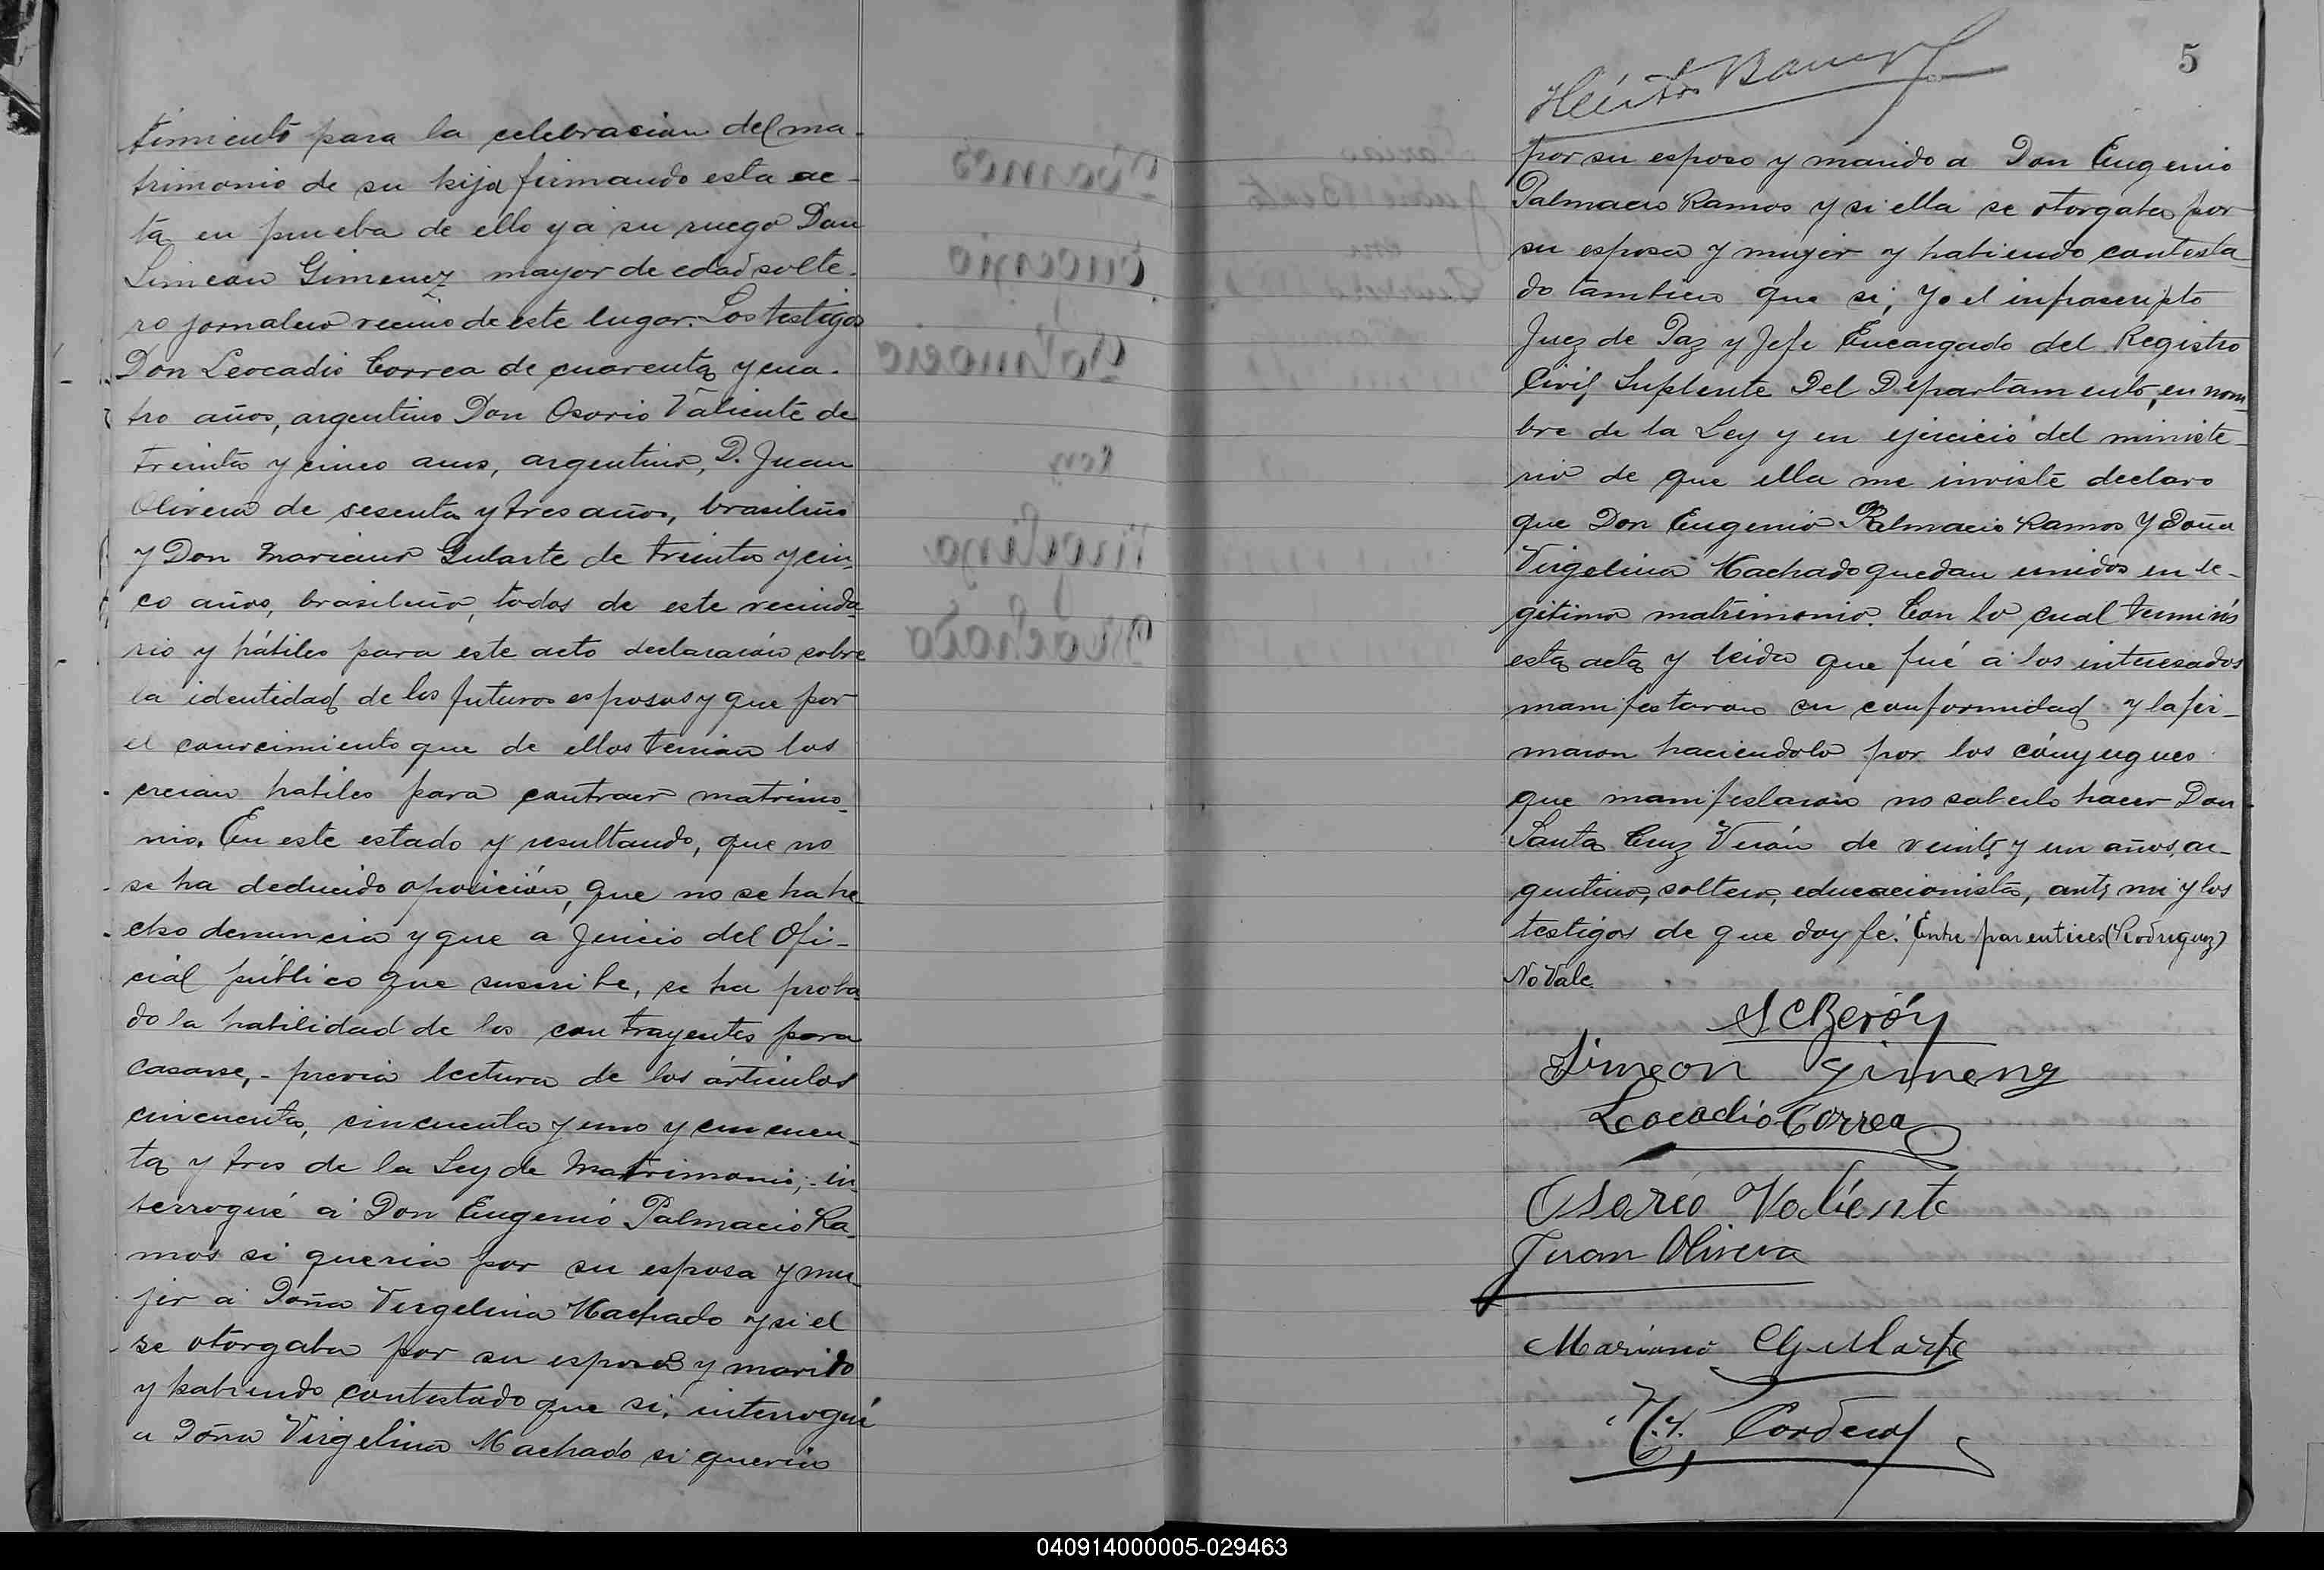 timiento para la celebracion del ma-
trimonio de su hija firmando esta ac-
ta en prueba de ello y á su ruego Don
Simeon Gimenez mayor de edad solte-
ro jornalero vecino de este lugar. Los testigos
Don Leocadio Correa de cuarenta y cua-
tro años, argentino Don Osorio Valiente de
treinta y cinco anos, argentino, D. Juan
Olivera de sesenta y tres años, brasileño
y Don Mariano Gularte de treinta y cin-
co años, brasileño, todos de este vecinda-
rio y hábiles para este acto declararón sobre
la identidad de los futuros esposos y que por
el conocimiento que de ellos tenian los
creian habiles para contraer matrimo-
nio. En este estado y resultando, que no
se ha deducido oposición, que no se ha he
cho denuncia y que a juicio del Ofi-
cial público que suscribe, se ha proba
do la habilidad de los contrayentes para
casarse, - previa lectura de los artículos
cincuenta, cincuenta y uno y cincuen-
ta y tres de la Ley de Matrimonio; - in-
terrogué á Don Eugenió Palmacio Ra-
mos si queria por su esposa y mu-
jer á Doña Virgelina Machado y si el
se otorgaba por su esposo y marido
y habiendo contestado que si, interrogué
a Doña Virgelina Machado si queria
5
por su esposo y marido a Don Eugenio
Palmacio Ramos y si ella se otorgaba por
su esposa y mujer y habiendo contesta-
do tambien que si, Yo el infrascripto
Juez de Paz y Jefe Encargado del Registro
Civil Suplente Del Departamento, en nom-
bre de la Ley y en ejercicio del ministe-
rio de que ella me inviste declaro
que Don Eugenio Palmacio Ramos y Doña
Virgelina Machado quedan unidos en le-
gitimo matrimonio. Con lo cual terminó
esta acta y leida que fué á los interesados
manifestaron su conformidad y la fir-
maron haciendolo por los cónyugues
que manifestaron no saberlo hacer Don
Santa Cruz Verón de veinte y un años, ar-
gentino, soltero, educacionista, ante mi y los
testigos de que doy fé. Entre parentices (Rodriguez)
No Vale.
S C Berón
Simeon Gimenz
Locadio Correa
Osorio Valiente
Juan Olivera
Mariano
Cordero
040914000005-029463